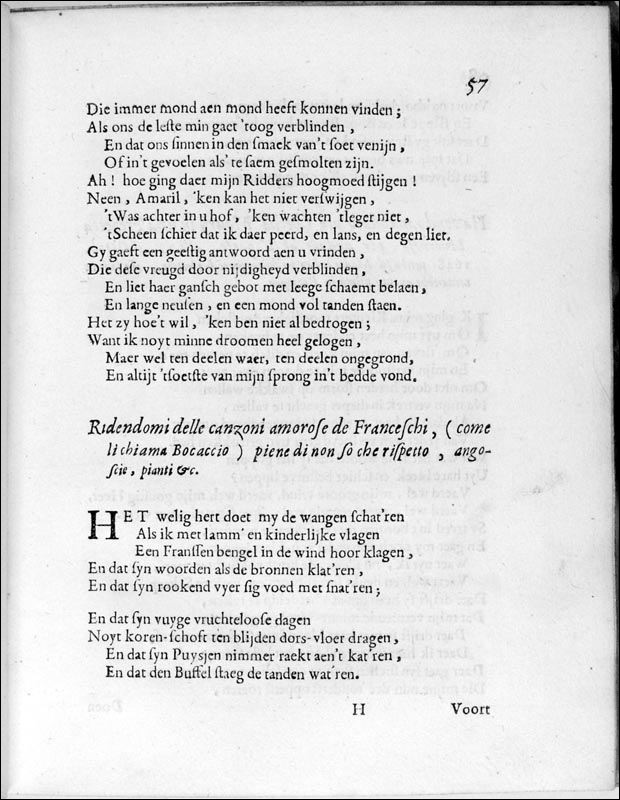 57
Die immer mond aen mond heeft konnen vinden;
Als ons de leſte min gaet 'toog verblinden,
En dat ons ſinnen in den ſmaek van't ſoet venijn,
Of in't gevoelen als' te ſaem geſmolten zijn.
Ah! hoe ging daer mijn Ridders hoogmoed ſtijgen!
Neen, Amaril, 'ken kan het niet verſwijgen,
'tWas achter in u hof, 'ken wachten 'tleger niet,
'tScheen ſchier dat ik daer peerd, en lans, en degen liet.
Gy gaeft een geeſtig antwoord aen u vrinden,
Die deſe vreugd door nijdigheyd verblinden,
En liet haer ganſch gebot met leege ſchaemt belaen,
En lange neuſen, en een mond vol tanden ſtaen.
Het zy hoe't wil, 'ken ben niet al bedrogen;
Want ik noyt minne droomen heel gelogen,
Maer wel ten deelen waer, ten deelen ongegrond,
En altijt 'tſoetſte van mijn ſprong in't bedde vond.
Ridendomi delle canzoni amoroſe de Franceſchi, (come
li chiama Bocaccio) piene di non ſo che riſpetto, ango-
ſcie, pianti &c.
HET welig hert doet my de wangen ſchat'ren
Als ik met lamm' en kinderlijke vlagen
Een Franſſen bengel in de wind hoor klagen,
En dat ſyn woorden als de bronnen klat'ren,
En dat ſyn rookend vyer ſig voed met ſnat'ren;
En dat ſyn vuyge vruchtelooſe dagen
Noyt koren-ſchoft ten blijden dors-vloer dragen,
En dat ſyn Puysjen nimmer raekt aen't kat'ren,
En dat den Buffel ſtaeg de tanden wat'ren.
H Voort